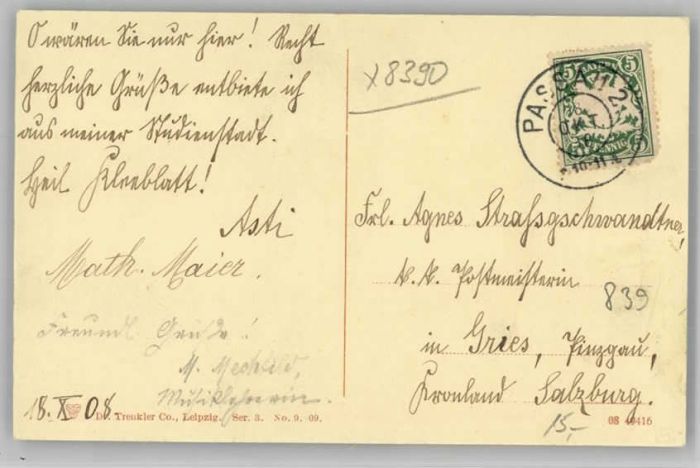 O wären Sie nur hier! Recht
herzliche Grüße entbiete ich
aus meiner Studienstadt.
Heil Kleeblatt!
Asti
Math. Maier.
Freundl. Grüße!
M.
Musiklehrerin.
18. X. 08.
Dr. Trenkler Co., Leipzig. Ser. 3. No. 9. 09.
x8390
PASSAU 2
OKT.
5 5
5 PFENNIG 5
Frl. Agnes Strassgschwandtner,
k. k. Postmeisterin
839
in Gries, Pinzgau,
Kronland Salzburg.
15,-
08 49416